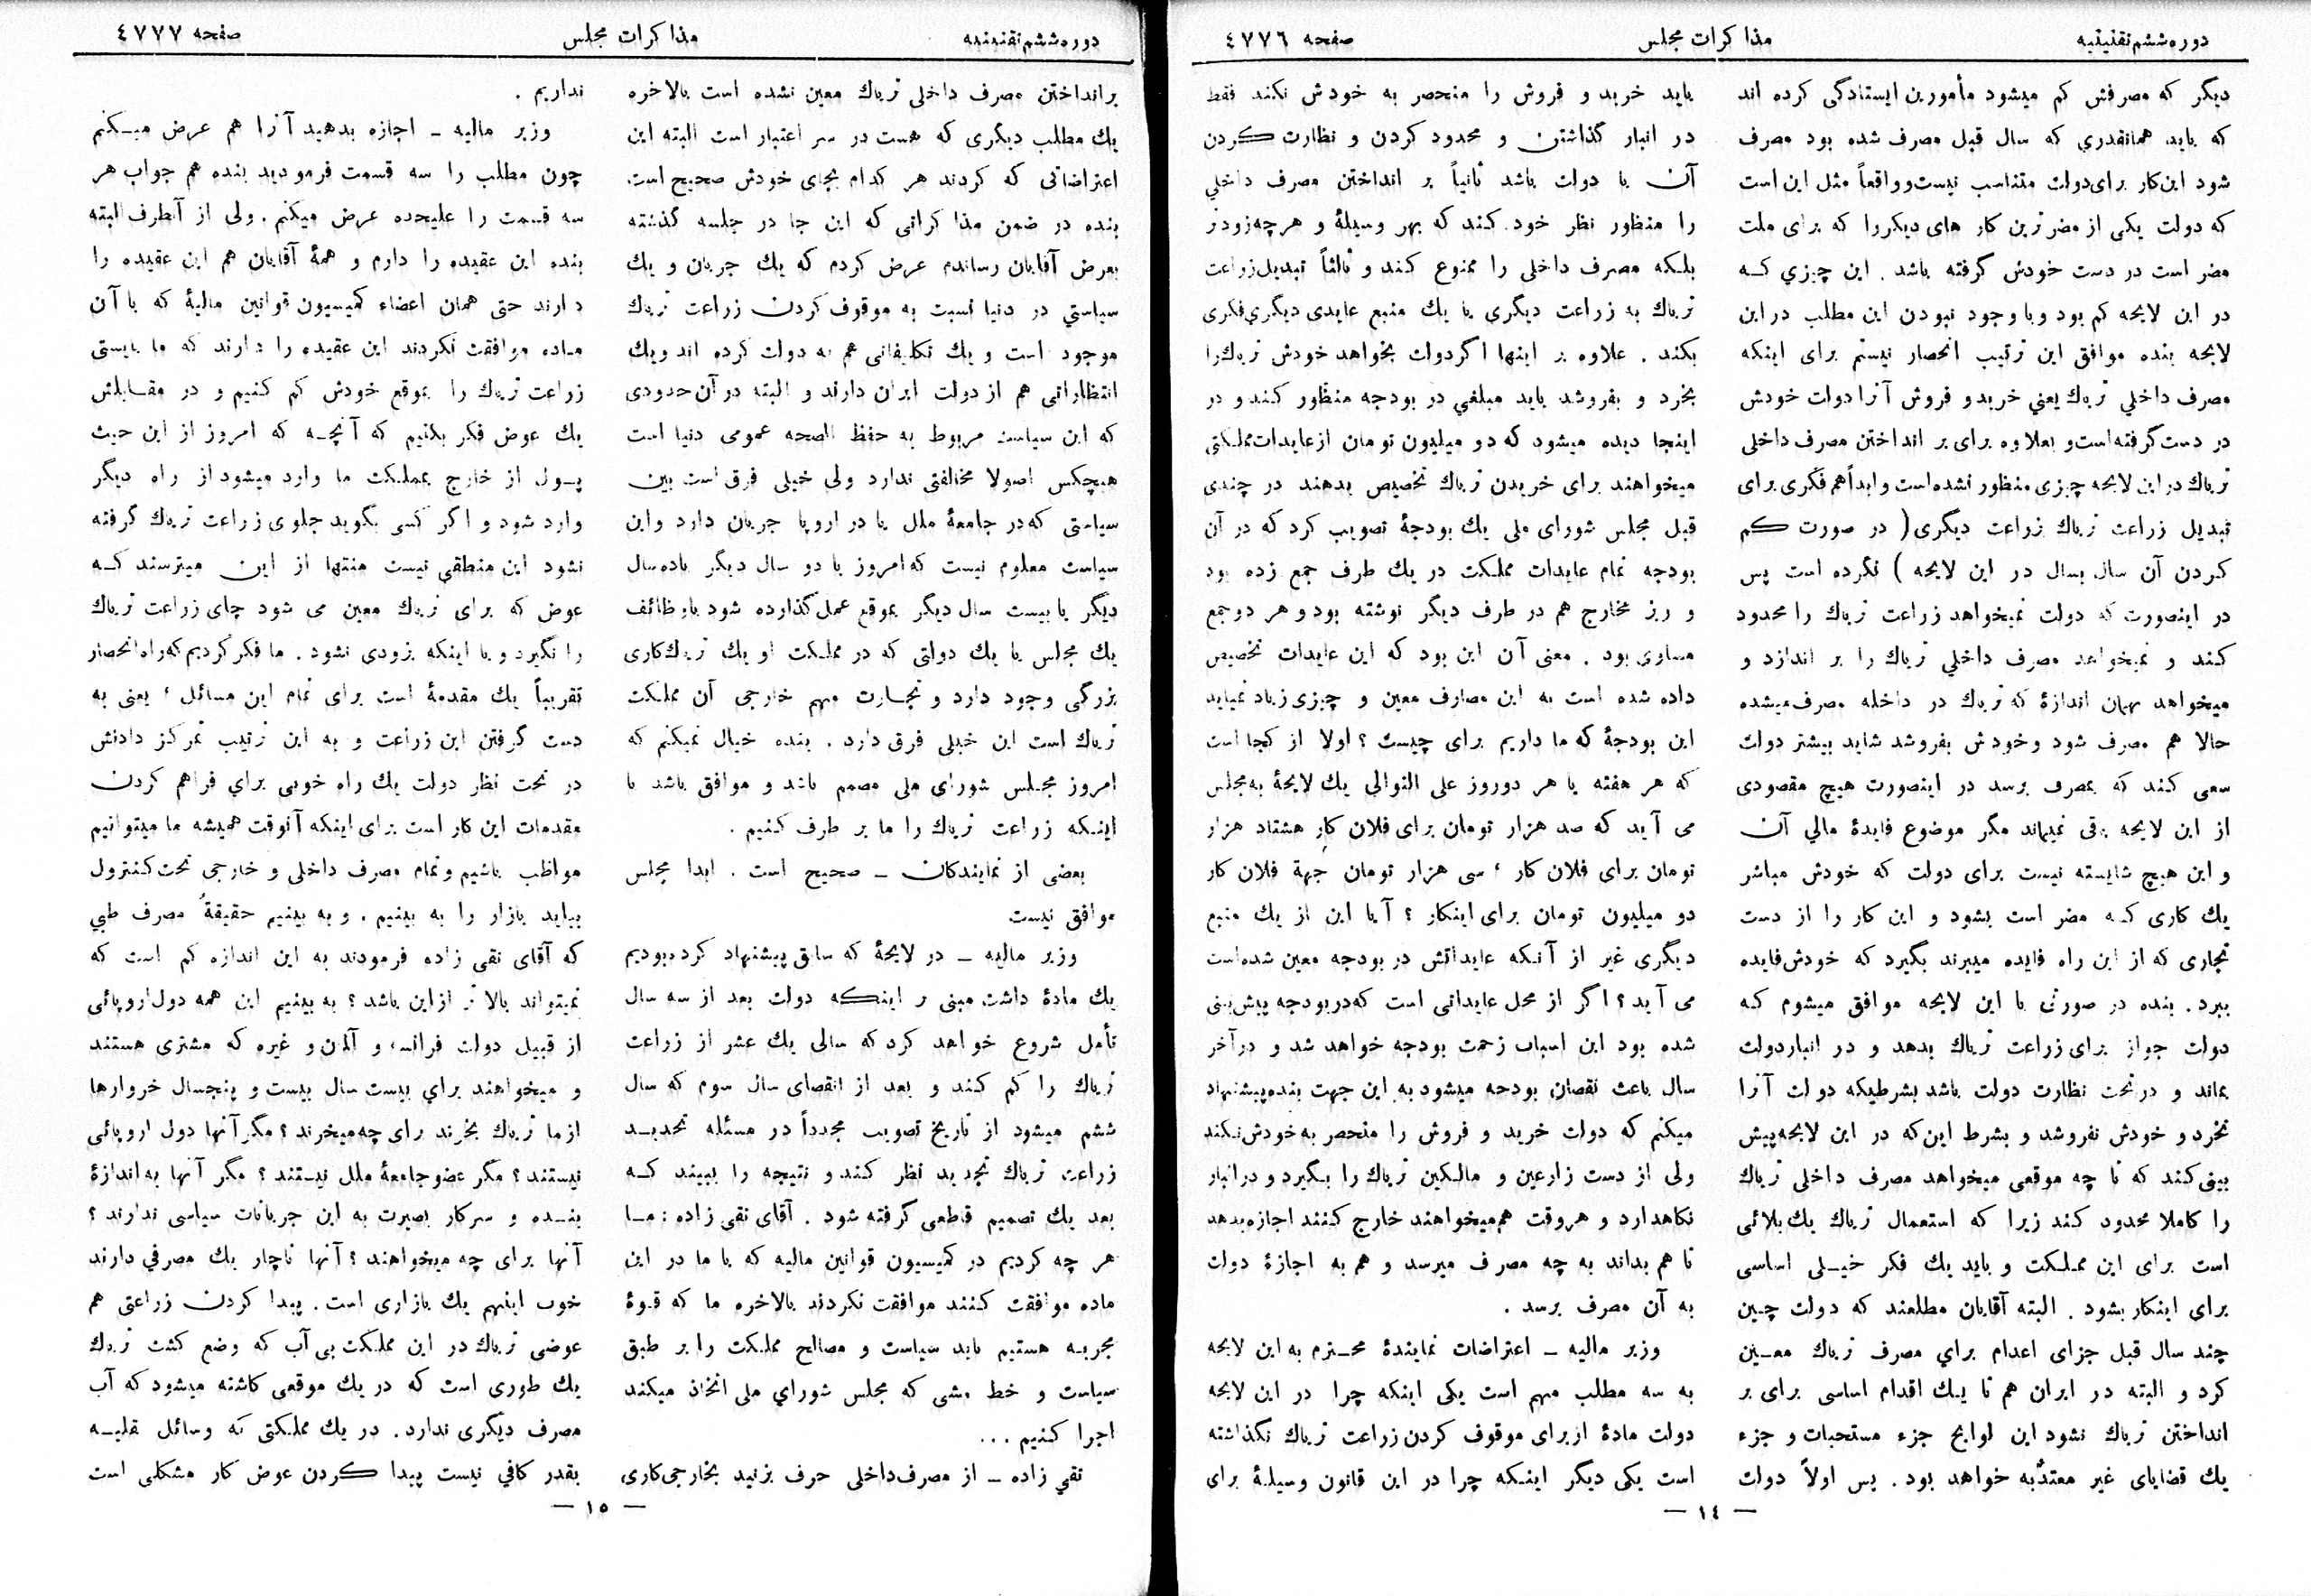 دوره ششم تقنینیه
مذاکرات مجلس
صفحه ٤٧٧٦
دیگر که مصرفش کم میشود مأمورین ایستادگی کرده اند
که باید همانقدری که سال قبل مصرف شده بود مصرف
شود این‌کار برای‌دولت متناسب نیست‌وواقعاً مثل این است
که دولت یکی از مضرترین کار های دیگررا که برای ملت
مضر است در دست خودش گرفته باشد . این چیزی کـه
در این لایحه کم بود وبا وجود نبودن این مطلب دراین
لایحه بنده موافق این ترتیب انحصار نیستم برای اینکه
مصرف داخلی تریاك یعنی خرید و فروش آنرا دولت خودش
در دست گرفته‌است‌و بعلاوه برای بر انداختن مصرف داخلی
تریاك دراین لایحه چیزی منظور نشده‌است وابداً هم فکری برای
تبدیل زراعت تریاك بزراعت دیگری ( در صورت کم
کردن آن سال بسال در این لایحه ) نکرده است پس
در اینصورت که دولت نمیخواهد زراعت تریاك را محدود
کند و نمیخواهد مصرف داخلی تریاك را بر اندازد و
میخواهد بهمان اندازۀ که تریاك در داخله مصرف میشده
حالا هم مصرف شود وخودش بفروشد شاید بیشتر دولت
سعی کند که بمصرف برسد در اینصورت هیچ مقصودی
از این لایحه باقی نمیماند مگر موضوع فایدۀ مالی آن
و این هیچ شایسته نیست برای دولت که خودش مباشر
یك کاری کـه مضر است بشود و این کار را از دست
تجاری که از این راه فایده میبرند بگیرد که خودش‌فایده
ببرد. بنده در صورتی با این لایحه موافق میشوم کـه
دولت جواز برای زراعت تریاك بدهد و در انباردولت
بماند و درتحت نظارت دولت باشد بشرطیکه دولت آنرا
نخرد و خودش نفروشد و بشرط این‌که در این لایحه‌پیش
بینی کند که تا چه موقعی میخواهد مصرف داخلی تریاك
را کاملا محدود کند زیرا که استعمال تریاك یك‌بلائی
است برای این مملکت و باید یك فکر خیـلی اساسی
برای اینکار بشود . البته آقایان مطلعند که دولت چـین
چند سال قبل جزای اعدام برای مصرف تریاك معـین
کرد و البته در ایران هم تا یـك اقدام اساسی برای بر
انداختن تریاك نشود این لوایح جزء مستحبات و جزء
یك قضایای غیر معتدٌبه خواهد بود . پس اولاً دولت
باید خرید و فروش را منحصر به خودش نکند فقط
در انبار گذاشتن و محدود کردن و نظارت کردن
آن با دولت باشد ثانیاً بر انداختن مصرف داخلی
را منظور نظر خود کند که بهر وسیلۀ و هرچه‌زودتر
بلـکه مصرف داخلی را ممنوع کند و ثالثاً تبدیل‌زراعت
تریاك به زراعت دیگری یا یك منبع عایدی دیگری‌فکری
بکند . علاوه بر اینها اگردولت بخواهد خودش تریاك‌را
بخرد و بفروشد باید مبلغی در بودجه منظور کند و در
اینجا دیده میشود که دو میلیون تومان ازعایدات‌مملکتی
میخواهند برای خریدن تریاك تخصیص بدهند در چندی
قبل مجلس شورای ملی یك بودجۀ تصویب کرد که در آن
بودجه تمام عایدات مملکت در یك طرف جمع زده بود
و ریز مخارج هم در طرف دیگر نوشته بود و هر دو جمع
مساوی بود . معنی آن این بود که این عایدات تخصیص
داده شده است به این مصارف معین و چیزی زیاد نمیاید
این بودجۀ که ما داریم برای چیست ؟ اولا از کجا است
که هر هفته یا هر دوروز علی التوالی یك لایحۀ به‌مجلس
می آید که صد هزار تومان برای فلان کار هشتاد هزار
تومان برای فلان کار ، سی هزار تومان جهة فلان کار
دو میلیون تومان برای اینکار ؟ آیا این از یك منبع
دیگری غیر از آنـکه عایداتش در بودجه معین شده‌است
می آید ؟ اگر از محل عایداتی است که‌دربودجه پیش‌بینی
شده بود این اسباب زحمت بودجه خواهد شد و درآخر
سال باعث نقصان بودجه میشود به این جهت بنده‌پیشنهاد
میکنم که دولت خرید و فروش را منحصر به خودش‌نکند
ولی از دست زارعین و مالکین تریاك را بـگیرد و درانبار
نگاهدارد و هروقت هم‌میخواهند خارج کنند اجازه‌بدهد
تا هم بداند به چه مصرف میرسد و هم به اجازۀ دولت
به آن مصرف برسد .
وزیر مالیه ـ اعتراضات نمایندۀ محـترم به این لایحه
به سه مطلب مهم است یکی اینکه چرا در این لایحه
دولت مادۀ از برای موقوف کردن زراعت تریاك نگذاشته
است یکی دیگر اینـکه چرا در این قانون وسیلـۀ برای
— ١٤ —
دوره ششم تقنینیه
مذاکرات مجلس
صفحه ٤٧٧٧
برانداختن مصرف داخلی تریاك معین نشده است بالاخره
یك مطلب دیگری که هست در سر اعتبار است البته این
اعتراضاتی که کردند هر کدام بجای خودش صحیح است.
بنده در ضمن مذاکراتی که این جا در جلسه گذشته
بعرض آقایان رساندم عرض کردم که یك جریان و یك
سیاستی در دنیا نسبت به موقوف کردن زراعت تریاك
موجود است و یك تکلیفاتی هم به دولت کرده اند ویك
انتظاراتی هم از دولت ایران دارند و البته در آن حدودی
که این سیاست مربوط به حفظ الصحه عمومی دنیا است
هیچکس اصولا مخالفتی ندارد ولی خیلی فرق است بین
سیاستی که‌در جامعۀ ملل یا در اروپا جریان دارد واین
سیاست معلوم نیست که‌امروز یا دو سال دیگر یاده‌سال
دیگر یا بیست سال دیگر بموقع عمل‌گذارده شود باوظائف
یك مجلس یا یك دولتی که در مملکت او یك تریاك‌کاری
بزرگی وجود دارد و تجـارت مهم خارجی آن مملکت
تریاك است این خیلی فرق دارد . بنده خیال نمیکنم که
امروز مجـلس شورای ملی مصمم باشد و موافق باشد با
اینـکه زراعت تریاك را ما بر طرف کنیم .
بعضی از نمایندگان ـ صحیح است . ابدا مجلس
موافق نیست
وزیر مالیه ـ در لایحۀ که سابق پیشنهاد کرده‌بودیم
یك مادۀ داشت مبنی بر اینکه دولت بعد از سه سال
تأمل شروع خواهد کرد که سالی یك عشر از زراعت
تریاك را کم کند و بعد از انقضای سال سوم که سال
ششم میشود از تاریخ تصویب مجدداً در مسئله تحدیـد
زراعت تریاك تجدید نظر کند و نتیجه را ببیند کـه
بعد یك تصمیم قطعی گرفته شود . آقای تقی زاده : مـا
هر چه کردیم در کمیسیون قوانین مالیه که با ما در این
ماده موافقت کـنند موافقت نکردند بالاخره ما که قـوۀ
مجریـه هستیم باید سیاست و مصالح مملـکت را بر طبق
سیاست و خط مشی که مجلس شورای ملی اتخاذ میکند
اجرا کنیم ...
تقی زاده ـ از مصرف‌داخلی حرف بزنید بخارجی‌کاری
نداریم .
وزیر مالیه ـ اجازه بدهید آنرا هم عرض میـکنم
چون مطلب را سه قسمت فرمودید بنده هم جواب هر
سه قسمت را علیحده عرض میکنم . ولی از آنطرف البته
بنده این عقیده را دارم و همۀ آقایان هم این عقیده را
دارند حتی همان اعضاء کمیسیون قوانین مالیۀ که با آن
مـاده موافقت نکردند این عقیده را دارند که ما بایستی
زراعت تریاك را بموقع خودش کم کنیم و در مقـابلش
یك عوض فکر بکنیم که آنچـه که امروز از این حیث
پـول از خارج بمملـکت ما وارد میشود از راه دیگر
وارد شود و اگر کسی بگوید جلوی زراعت تریاك گرفته
نشود این منطقی نیست منتها از این میترسند کـه
عوض که برای تریاك معین می شود جای زراعت تریاك
را نگیرد و یا اینکه بزودی نشود . ما فکر کردیم‌که‌راه‌انحصار
تقریباً یك مقدمۀ است برای تمام این مسائل ، یعنی به
دست گرفتن این زراعت و به این ترتیب تمرکز دادنش
در تحت نظر دولت یك راه خوبی برای فراهم کردن
مقدمات این کار است برای اینکه آنوقت همیشه ما میتوانیم
مواظب باشیم وتمام مصرف داخلی و خارجی تحت‌کنترول
بیاید بازار را به بینیم . و به بینیم حقیقةً مصرف طبی
که آقای تقی زاده فرمودند به این اندازه کم است که
نمیتواند بالا تر ازاین باشد ؟ به بینیم این همه دول‌اروپائی
از قبیل دولت فرانسه و آلمان و غیره که مشتری هستند
و میخواهند برای بیست سال بیست و پنجسال خروارها
ازما تریاك بخرند برای چه میخرند ؟ مگر آنها دول اروپائی
نیستند ؟ مگر عضوجامعۀ ملل نیستند ؟ مگر آنها به‌اندازۀ
بنـده و سرکار بصیرت به این جریانات سیاسی ندارند ؟
آنها برای چه میخواهند ؟ آنها ناچار یك مصرفی دارند
خوب اینهم یك بازاری است . پیدا کردن زراعتی هم
عوضی تریاك در این مملکت بی آب که وضع کشت تریاك
یك طوری است که در یك موقعی کاشته میشود که آب
مصرف دیگری ندارد . در یك مملـکتی که وسائل نقلیـه
بقدر کافی نیست پیدا کردن عوض کار مشکلی است
— ١٥ —